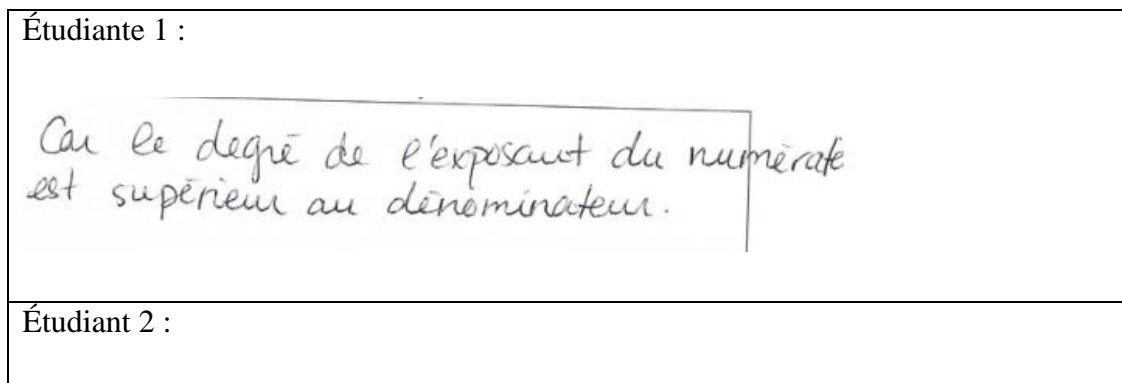 Étudiante 1 :
Car le degré de l'exposant du numérate
est supérieur au dénominateur.
Étudiant 2 :